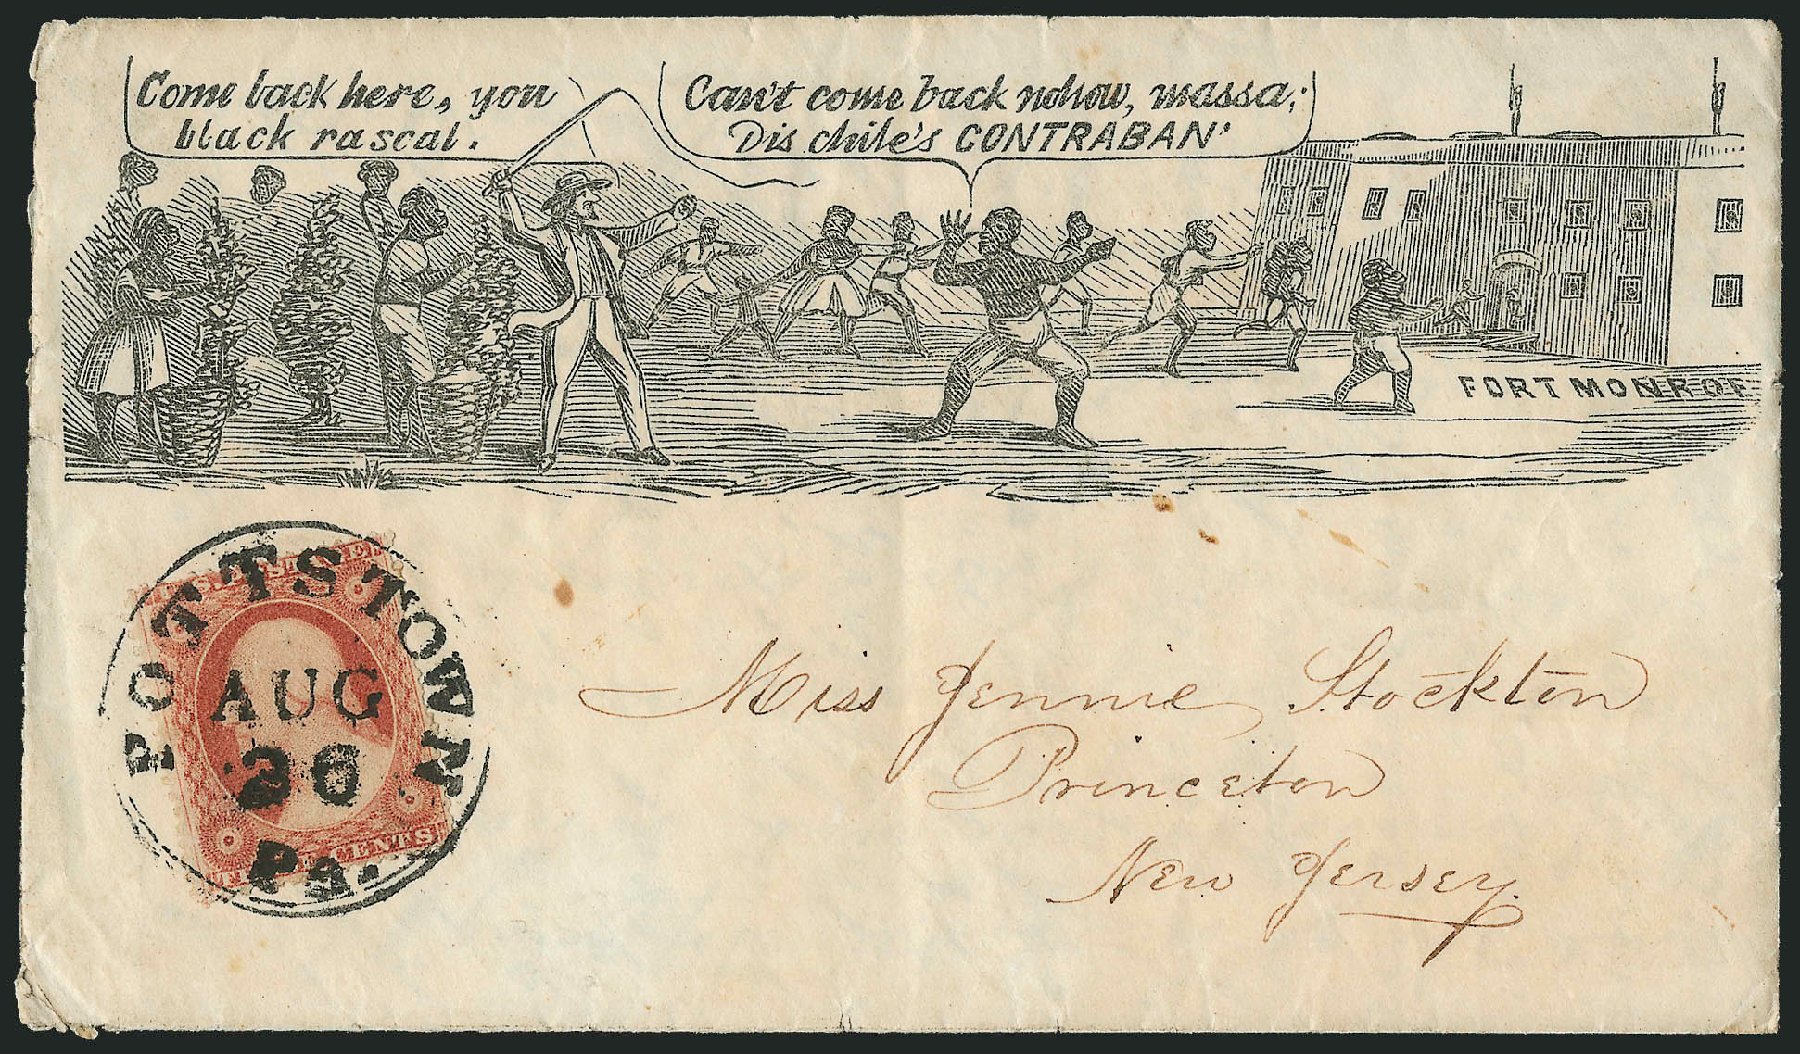 Come back here, you
black rascal.
Can't come back nohow, massa;
Dis chile's CONTRABAN'
FORT MONROE
POTTSTOWN
AUG
26
Pa.
U.S. POSTAGE
CENTS
Miss Jennie Stockton
Princeton
New Jersey